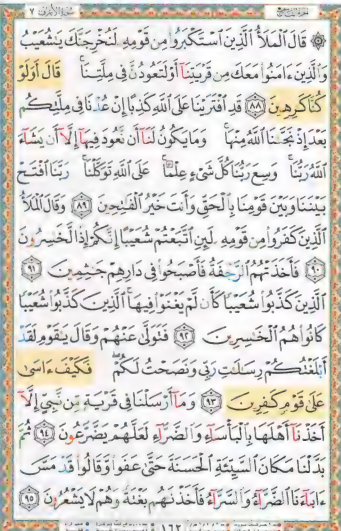 الجزء التاسع سورة الأعراف ٧
۞ قَالَ ٱلْمَلَأُ ٱلَّذِينَ ٱسْتَكْبَرُوا۟ مِن قَوْمِهِۦ لَنُخْرِجَنَّكَ يَـٰشُعَيْبُ
وَٱلَّذِينَ ءَامَنُوا۟ مَعَكَ مِن قَرْيَتِنَآ أَوْ لَتَعُودُنَّ فِى مِلَّتِنَا ۚ قَالَ أَوَلَوْ
كُنَّا كَـٰرِهِينَ ٨٨ قَدِ ٱفْتَرَيْنَا عَلَى ٱللَّهِ كَذِبًا إِنْ عُدْنَا فِى مِلَّتِكُم
بَعْدَ إِذْ نَجَّىٰنَا ٱللَّهُ مِنْهَا ۚ وَمَا يَكُونُ لَنَآ أَن نَّعُودَ فِيهَآ إِلَّآ أَن يَشَآءَ
ٱللَّهُ رَبُّنَا ۚ وَسِعَ رَبُّنَا كُلَّ شَىْءٍ عِلْمًا ۚ عَلَى ٱللَّهِ تَوَكَّلْنَا ۚ رَبَّنَا ٱفْتَحْ
بَيْنَنَا وَبَيْنَ قَوْمِنَا بِٱلْحَقِّ وَأَنتَ خَيْرُ ٱلْفَـٰتِحِينَ ٨٩ وَقَالَ ٱلْمَلَأُ
ٱلَّذِينَ كَفَرُوا۟ مِن قَوْمِهِۦ لَئِنِ ٱتَّبَعْتُمْ شُعَيْبًا إِنَّكُمْ إِذًا لَّخَـٰسِرُونَ
٩٠ فَأَخَذَتْهُمُ ٱلرَّجْفَةُ فَأَصْبَحُوا۟ فِى دَارِهِمْ جَـٰثِمِينَ ٩١
ٱلَّذِينَ كَذَّبُوا۟ شُعَيْبًا كَأَن لَّمْ يَغْنَوْا۟ فِيهَا ۚ ٱلَّذِينَ كَذَّبُوا۟ شُعَيْبًا
كَانُوا۟ هُمُ ٱلْخَـٰسِرِينَ ٩٢ فَتَوَلَّىٰ عَنْهُمْ وَقَالَ يَـٰقَوْمِ لَقَدْ
أَبْلَغْتُكُمْ رِسَـٰلَـٰتِ رَبِّى وَنَصَحْتُ لَكُمْ ۖ فَكَيْفَ ءَاسَىٰ
عَلَىٰ قَوْمٍ كَـٰفِرِينَ ٩٣ وَمَآ أَرْسَلْنَا فِى قَرْيَةٍ مِّن نَّبِىٍّ إِلَّآ
أَخَذْنَآ أَهْلَهَا بِٱلْبَأْسَآءِ وَٱلضَّرَّآءِ لَعَلَّهُمْ يَضَّرَّعُونَ ٩٤ ثُمَّ
بَدَّلْنَا مَكَانَ ٱلسَّيِّئَةِ ٱلْحَسَنَةَ حَتَّىٰ عَفَوا۟ وَّقَالُوا۟ قَدْ مَسَّ
ءَابَآءَنَا ٱلضَّرَّآءُ وَٱلسَّرَّآءُ فَأَخَذْنَـٰهُم بَغْتَةً وَهُمْ لَا يَشْعُرُونَ ٩٥
١٦٢